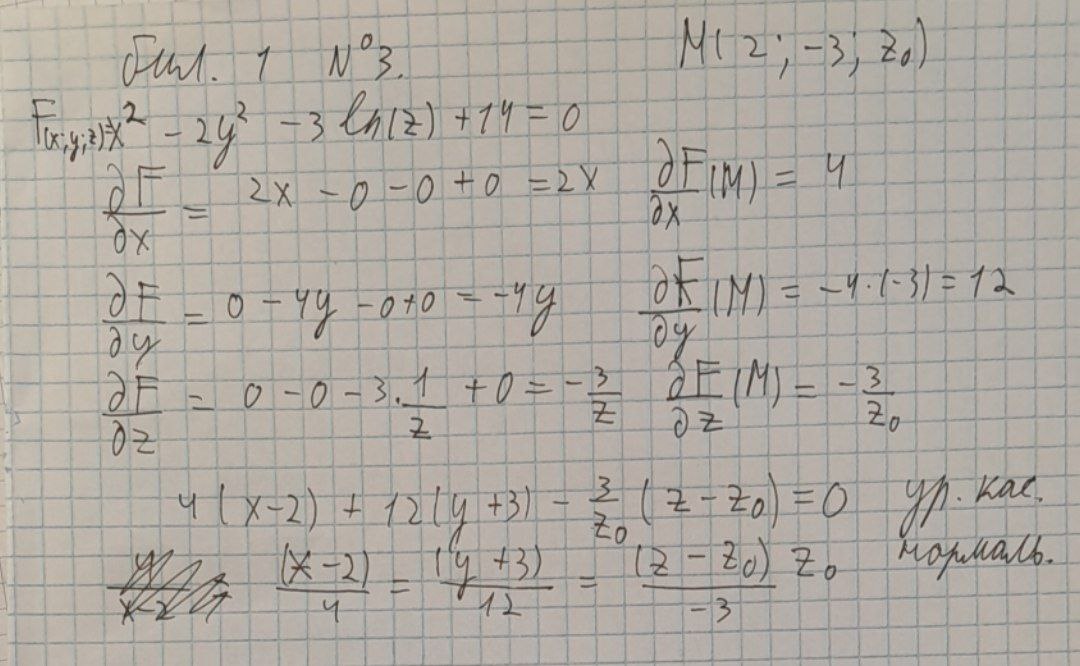 бил. 1 N°3. M(2; -3; z₀)
F(x;y;z)=x² - 2y² - 3 ln(z) + 14 = 0
∂F/∂x = 2x - 0 - 0 + 0 = 2x ∂F/∂x (M) = 4
∂F/∂y = 0 - 4y - 0 + 0 = -4y ∂F/∂y (M) = -4·(-3) = 12
∂F/∂z = 0 - 0 - 3·1/z + 0 = -3/z ∂F/∂z (M) = -3/z₀
4(x-2) + 12(y+3) - 3/z₀ (z - z₀) = 0 ур. кас.
(x-2)/4 = (y+3)/12 = (z - z₀)/-3 z₀ нормаль.